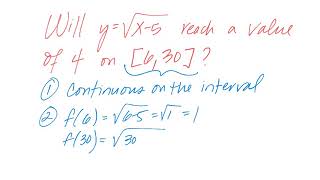 Will y=√x-5 reach a value
of 4 on [6,30]?
① continuous on the interval
② f(6)=√6-5=√1=1
f(30)=√30